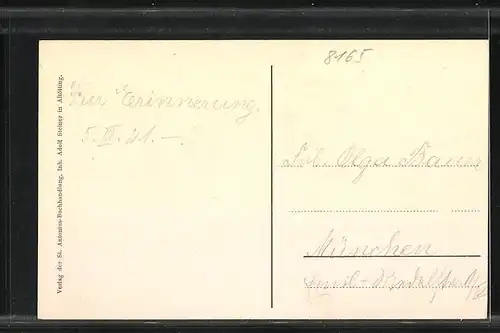 8165
Zur Erinnerung.
5. VI. 41. —
Frl. Olga Bauer
München
Verlag der St. Antonius-Buchhandlung, Inh. Adolf Steiner in Altötting.